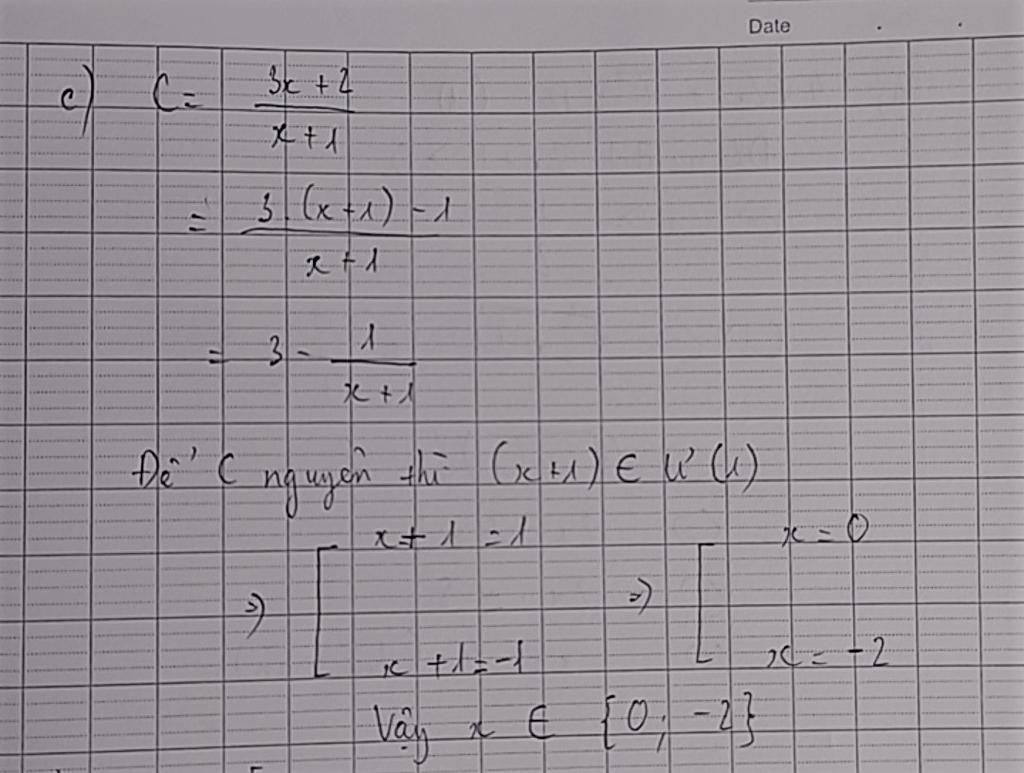 Date
c) C = \frac{3x + 2}{x + 1}
= \frac{3.(x+1) - 1}{x + 1}
= 3 - \frac{1}{x + 1}
Để C nguyên thì (x+1) ∈ Ư(1)
=> [ x + 1 = 1 => [ x = 0
x + 1 = -1 x = -2
Vậy x ∈ {0; -2}